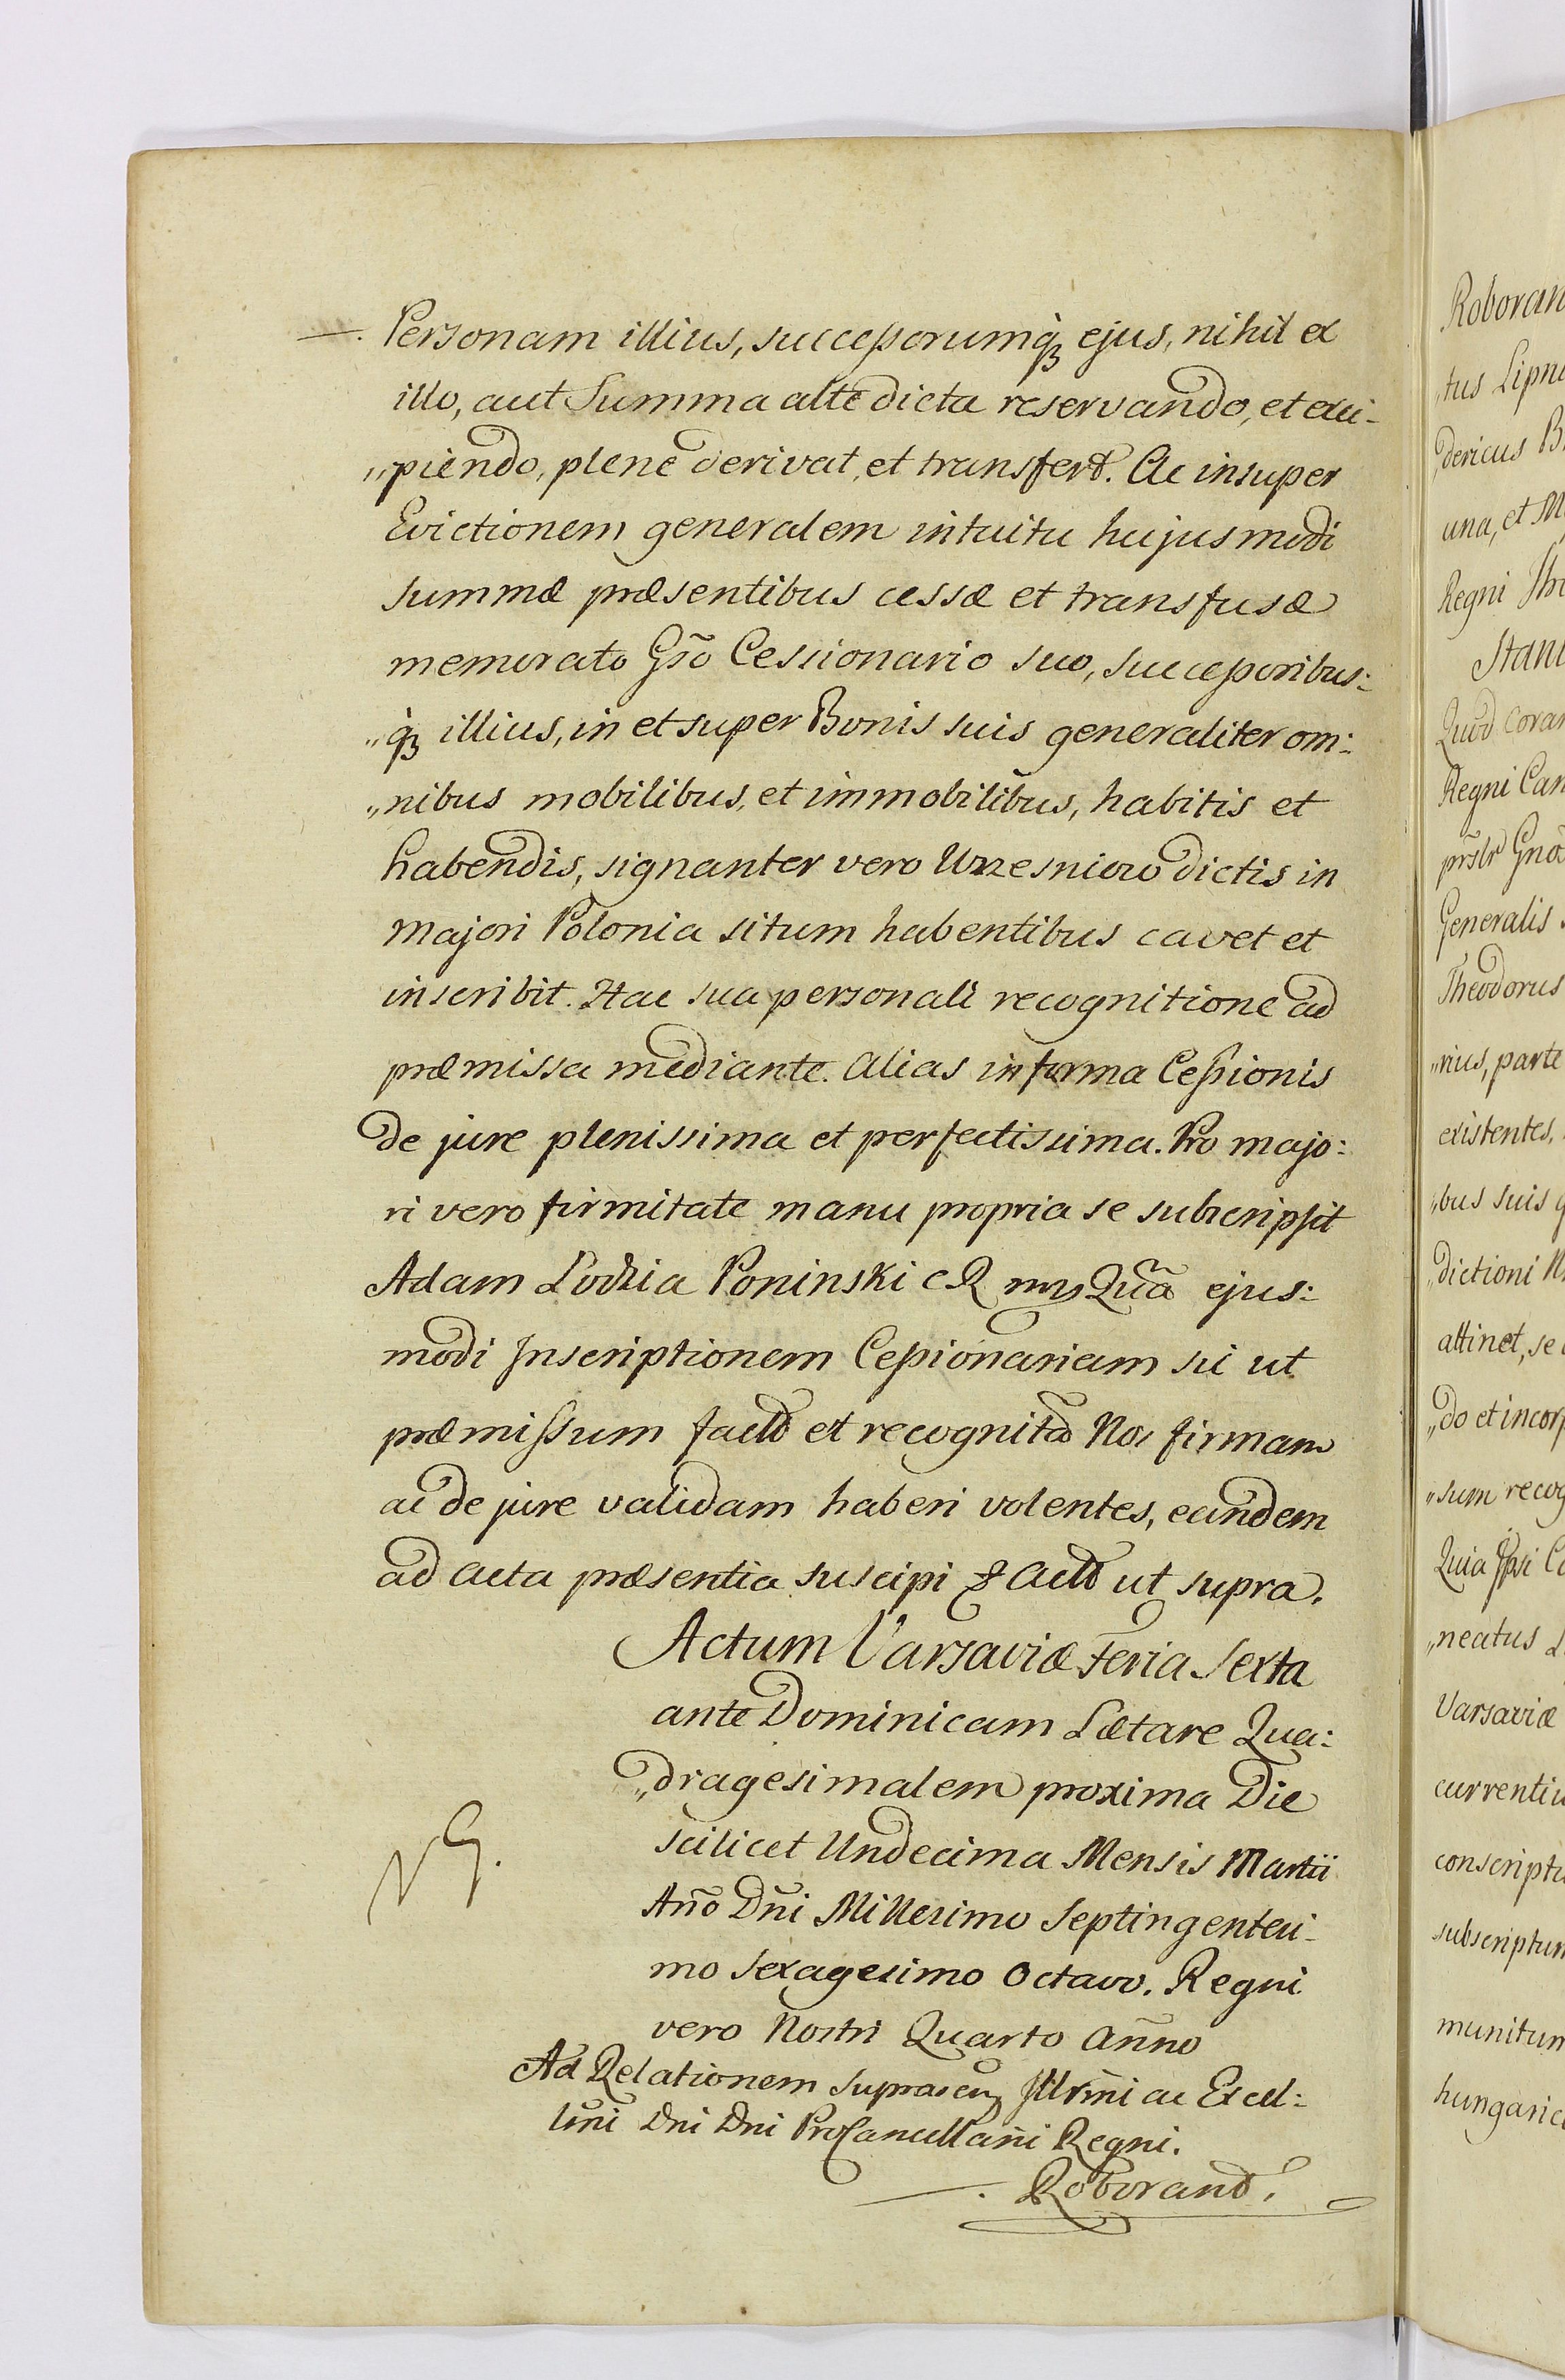 Personam illius, successorumq́ꝫ ejus, nihil ex
illo, aut Summa alte dicta reservando, et exci-
„piendo, plene derivat, et transfert. Ac insuper
Evictionem generalem intuitu hujusmodi
summæ præsentibus cessæ et transfusæ
memorato Gso Cessionario suo, successoribus:
„q́ꝫ illius, in et super Bonis suis generaliter om:
„nibus mobilibus, et immobilibus, habitis et
habendis, signanter vero Wrzesniow dictis in
Majori Polonia situm habentibus cavet et
inscribit. Hac sua personali recognitione ad
præmissa mediante. Alias in forma Cessionis
de jure plenissima et perfectissima. Pro majo:
ri vero firmitate manu propria se subscripsit
Adam Łodzia Poninski CR mp Qua ejus:
modi Inscriptionem Cessionariam sic ut
præmissum fact et recognita Nos firmam
ac de jure validam haberi volentes, eandem
ad Acta præsentia suscipi & Act ut supra.
Actum Varsaviæ Feria Sexta
ante Dominicam Lætare Qua:
„dragesimalem proxima Die
scilicet Undecima Mensis Martii
Año Dñi Millesimo Septingentesi-
mo Sexagesimo Octavo. Regni
vero Nostri Quarto Anno
NG.
Ad Relationem suprascr Illrmi ac Excel:
lmi Dni Dni ProCancellarii Regni.
Roborand.
Roboran
„tus Lipn
„dericus B
una, et M
Regni
Stani
Quod Coram
Regni Can
Gnos
Generalis
Theodorus
„rius, parte
existentes,
„bus suis g
„dictioni N
attinet, se
„do et incorp
„sum recog
Quia Ipsi C
„neatus
Varsaviæ
currentiu
conscriptu
subscriptum
munitum
hungaric